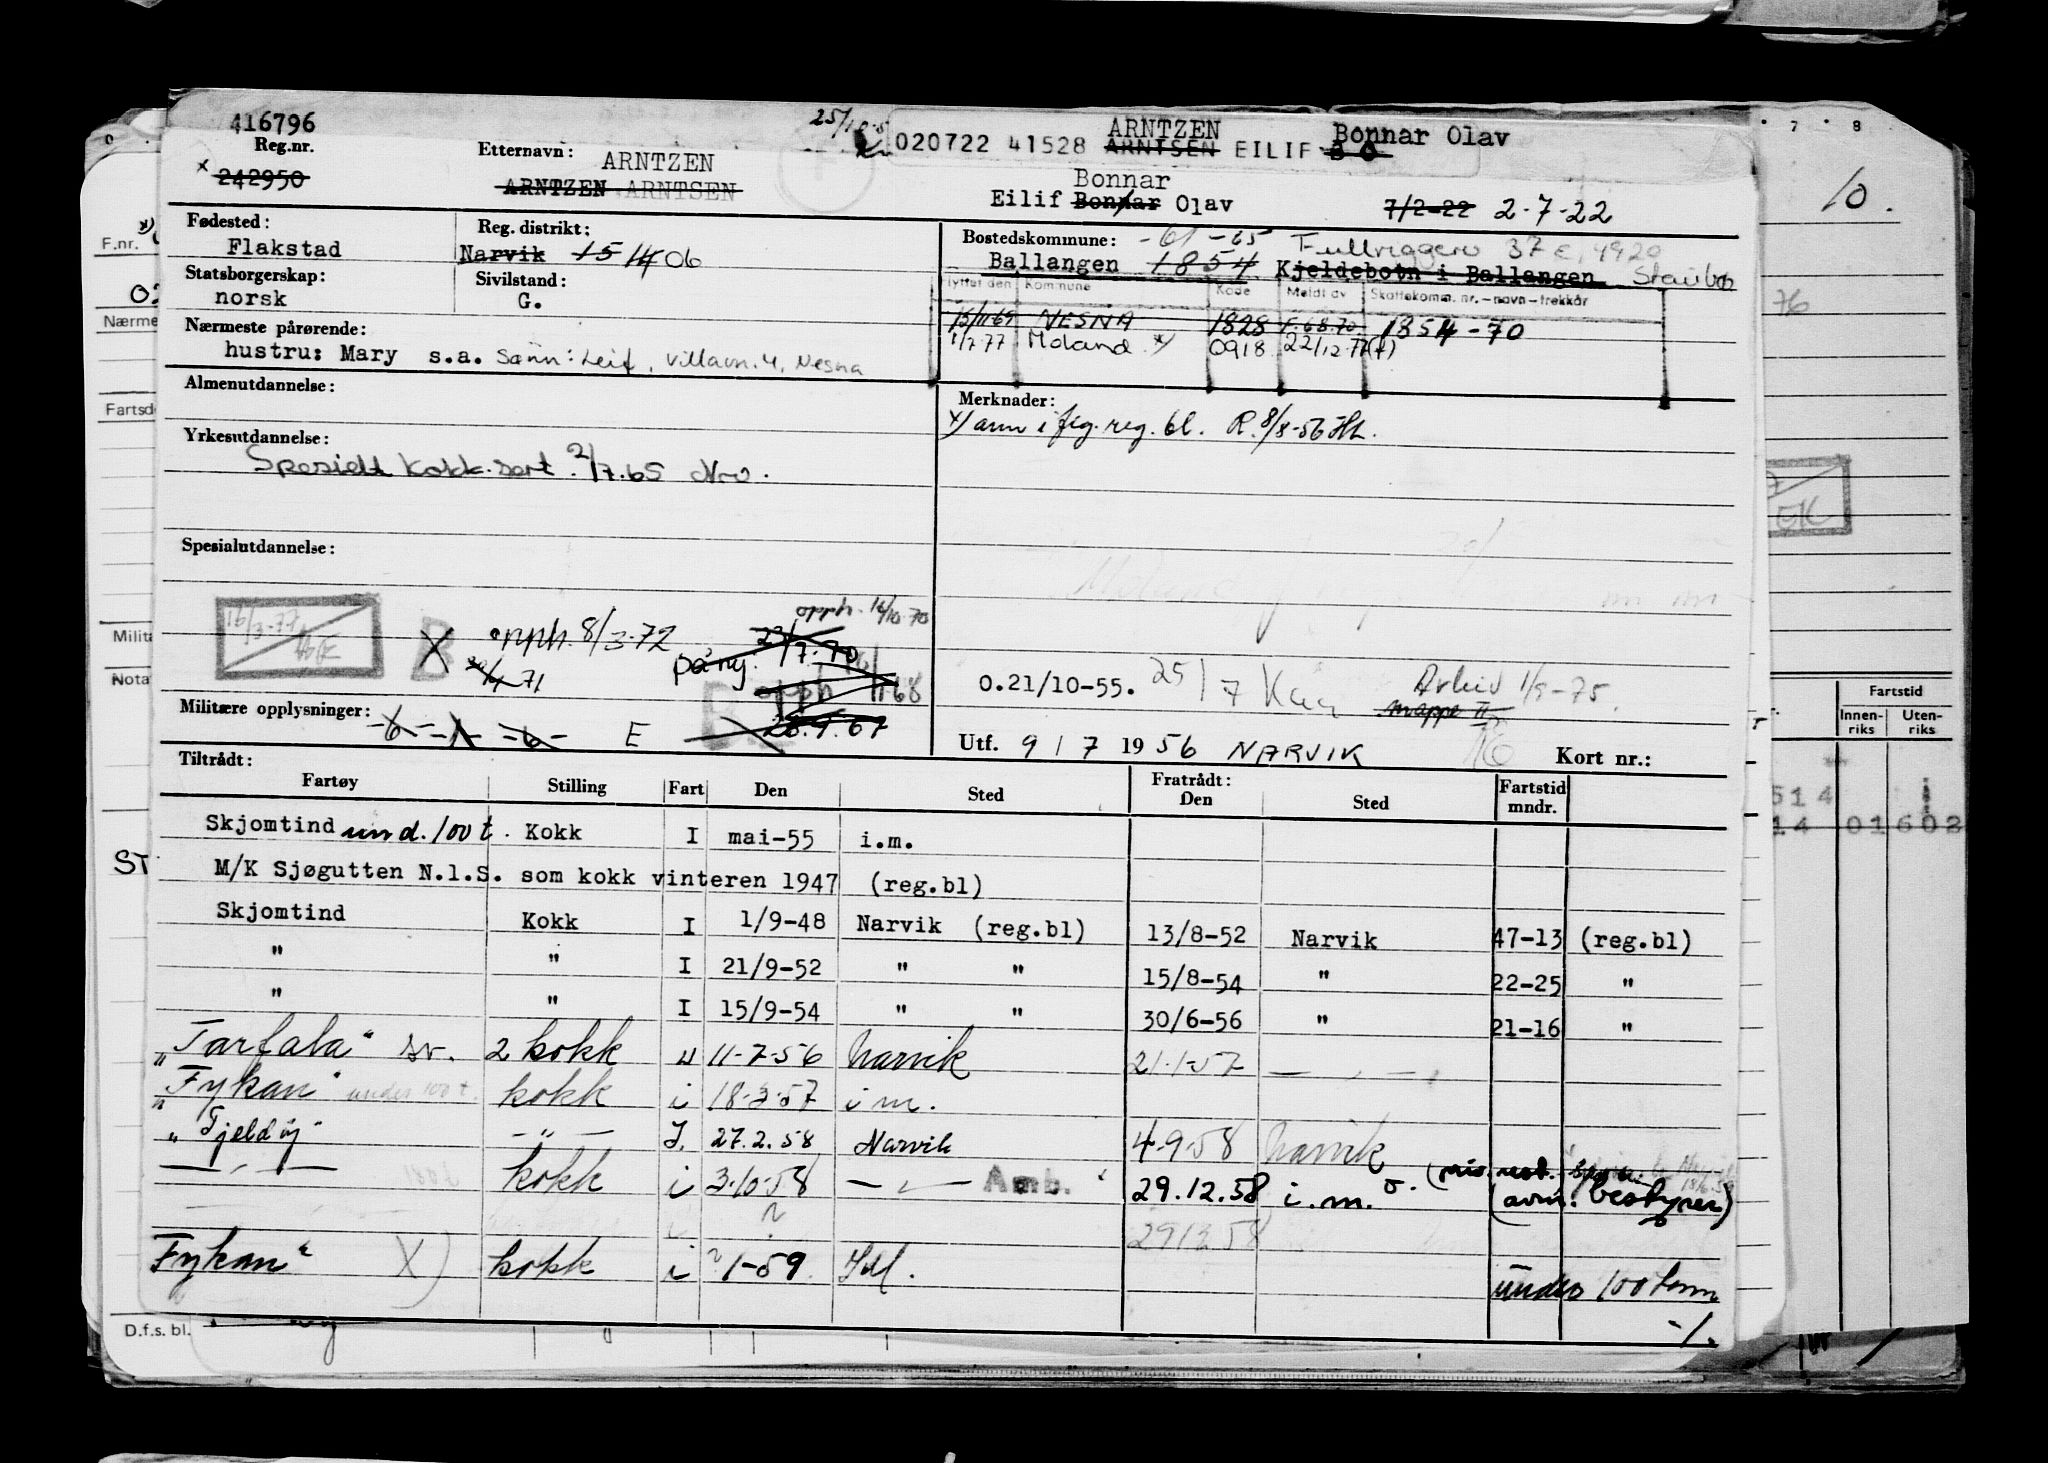 416796
Reg.nr.
x 242950
Etternavn: ARNTZEN
ARNTZEN ARNTSEN
020722 41528 ARNTSEN EILIF B O
ARNTZEN Bonnar Olav
Bonnar
Eilif Bonnar Olav 7/2-22 2-7-22
10.
Fødested:
Flakstad
Reg. distrikt:
Narvik 15 14 06
Bostedskommune: -61-65 Fullriggern 37 c, 4920
Ballangen 1854 Kjeldebotn i Ballangen Staubø
Statsborgerskap:
norsk
Sivilstand:
G.
Flyttet den Kommune Kode Meldt av Skattekomm. nr.-navn-trekkår
15/11 69 NESNA 1828 F.68.70. 1854-70
1/7.77 Moland x) 0918 22/12.77(f)
Nærmeste pårørende:
hustru: Mary s.a. Sønn: Leif, Villavn. 4, Nesna
Almenutdannelse:
Merknader:
x) ann i flg. reg. bl. R. 8/8-56 HL.
Yrkesutdannelse:
Spesielt kokk.sert. 2/7.65 Nrv.
Spesialutdannelse:
16/3-77
B
X opph. 8/3-72
71
opph. 14/10-70
på ny. 23/7-70
opph 11-68
28.9.67
0.21/10-55. 25/7 Arkiv 1/9-75.
mappe II
Militære opplysninger: -6-1-6- E
Utf. 9/7 1956 NARVIK Kort nr.:
Tiltrådt:
Fartøy Stilling Fart Den Sted Fratrådt: Den Sted Fartstid mndr.
Skjomtind und. 100 t. Kokk I mai-55 i.m.
M/K Sjøgutten N.l.S. som kokk vinteren 1947 (reg.bl)
Skjomtind Kokk I 1/9-48 Narvik (reg.bl) 13/8-52 Narvik 47-13 (reg.bl)
" " I 21/9-52 " " 15/8-54 " 22-25 "
" " I 15/9-54 " " 30/6-56 " 21-16 "
"Tarfala" sv. 2 kokk u 11-7-56 Narvik 21-1-57 — " —
"Fykan" under 100 t. kokk i 18-3-57 i m.
"Tjeldøy" — " — I. 27.2.58 Narvik 4-9-58 Narvik
— " — kokk i 3-10-58 — " — Amb. 29.12.58 i.m.
(avm. bestyrer)
2912 58
Fykan" X) kokk i ?1-59 I.M. under 100 tonn
-/.
D.f.s. bl.
F.nr.
Nærme
Fartsd
Milita
Nota
ST
7 8
76
Fartstid
Innen-riks Uten-riks
514
14 01602